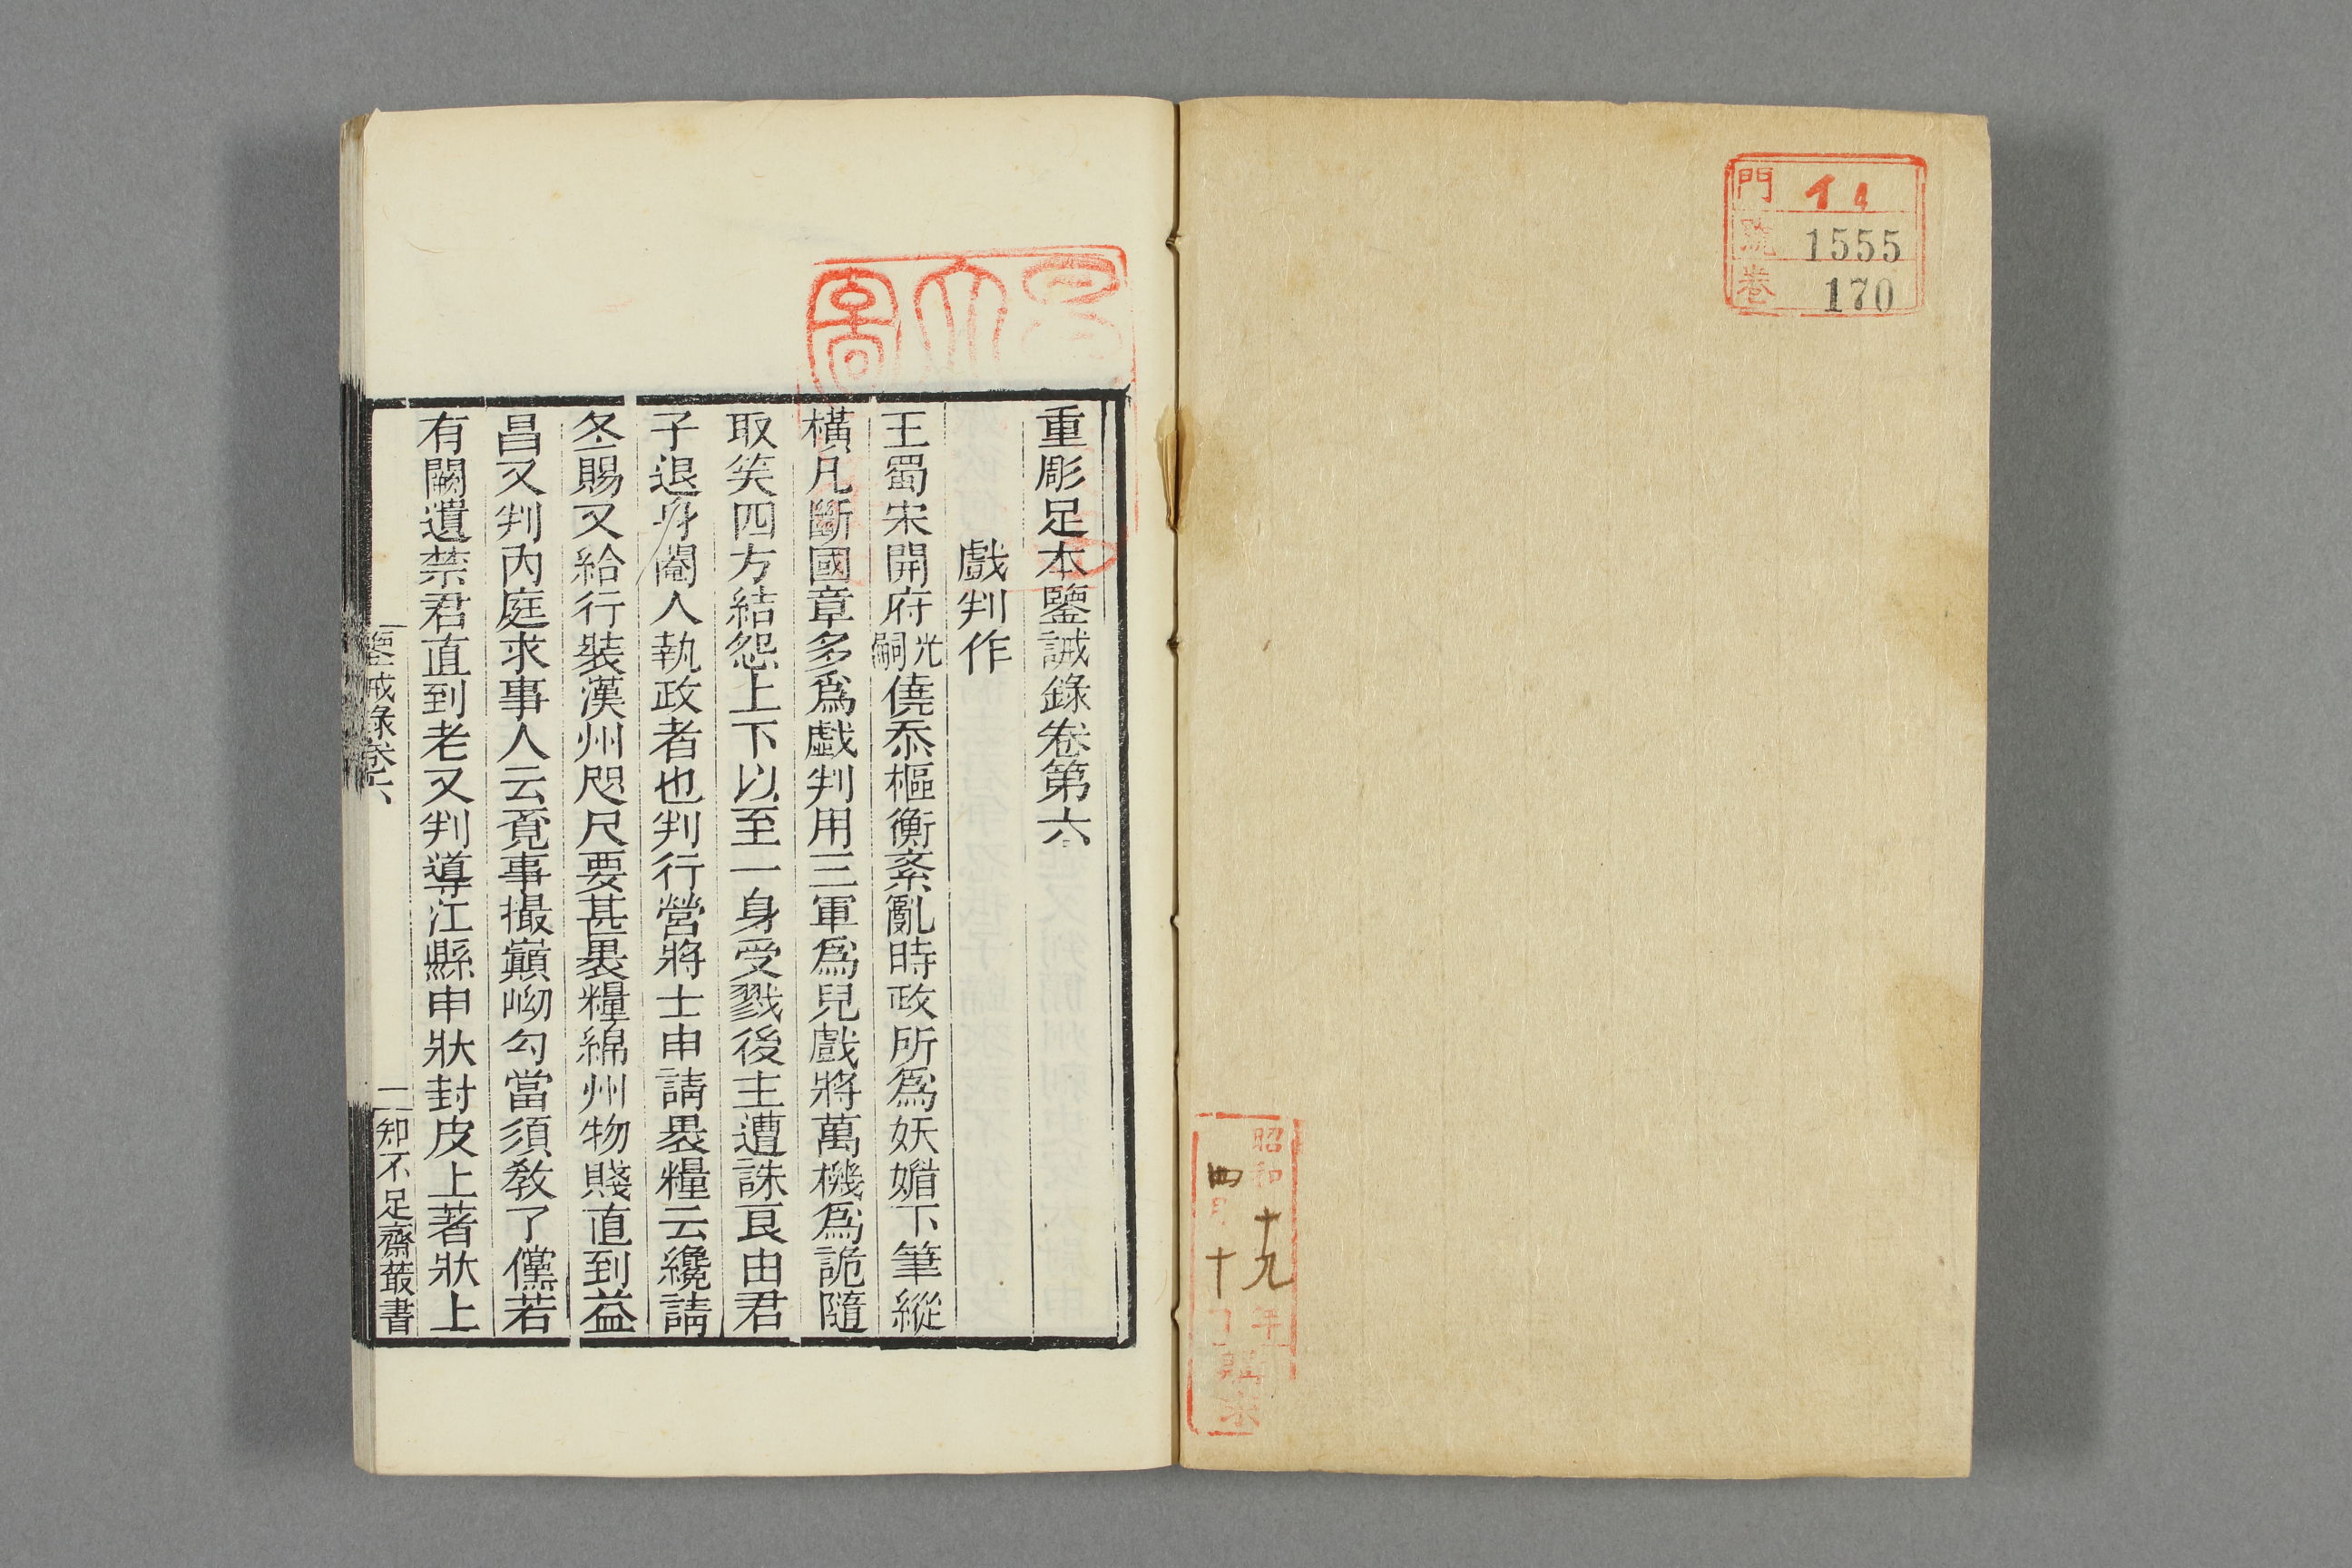 門 イ4
號 1555
卷 170
昭和十九年
四月十日
重彫足本鑒誡錄卷第六
戲判作
王蜀宋開府光嗣僥忝樞衡紊亂時政所爲妖媚下筆縱
橫凡斷國章多爲戲判用三軍爲兒戲將萬機爲詭隨
取笑四方結怨上下以至一身受戮後主遭誅良由君
子退身閹人執政者也判行營將士申請裹糧云纔請
冬賜又給行裝漢州咫尺要甚裹糧綿州物賤直到益
昌又判內庭求事人云覓事撮巔㘭勾當須教了儻若
有闕遺禁君直到老又判導江縣申狀封皮上著狀上
鑒戒錄卷六
一
知不足齋叢書